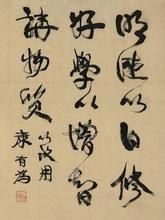 明以自修
好學以增智
講物質
以致用
康有為